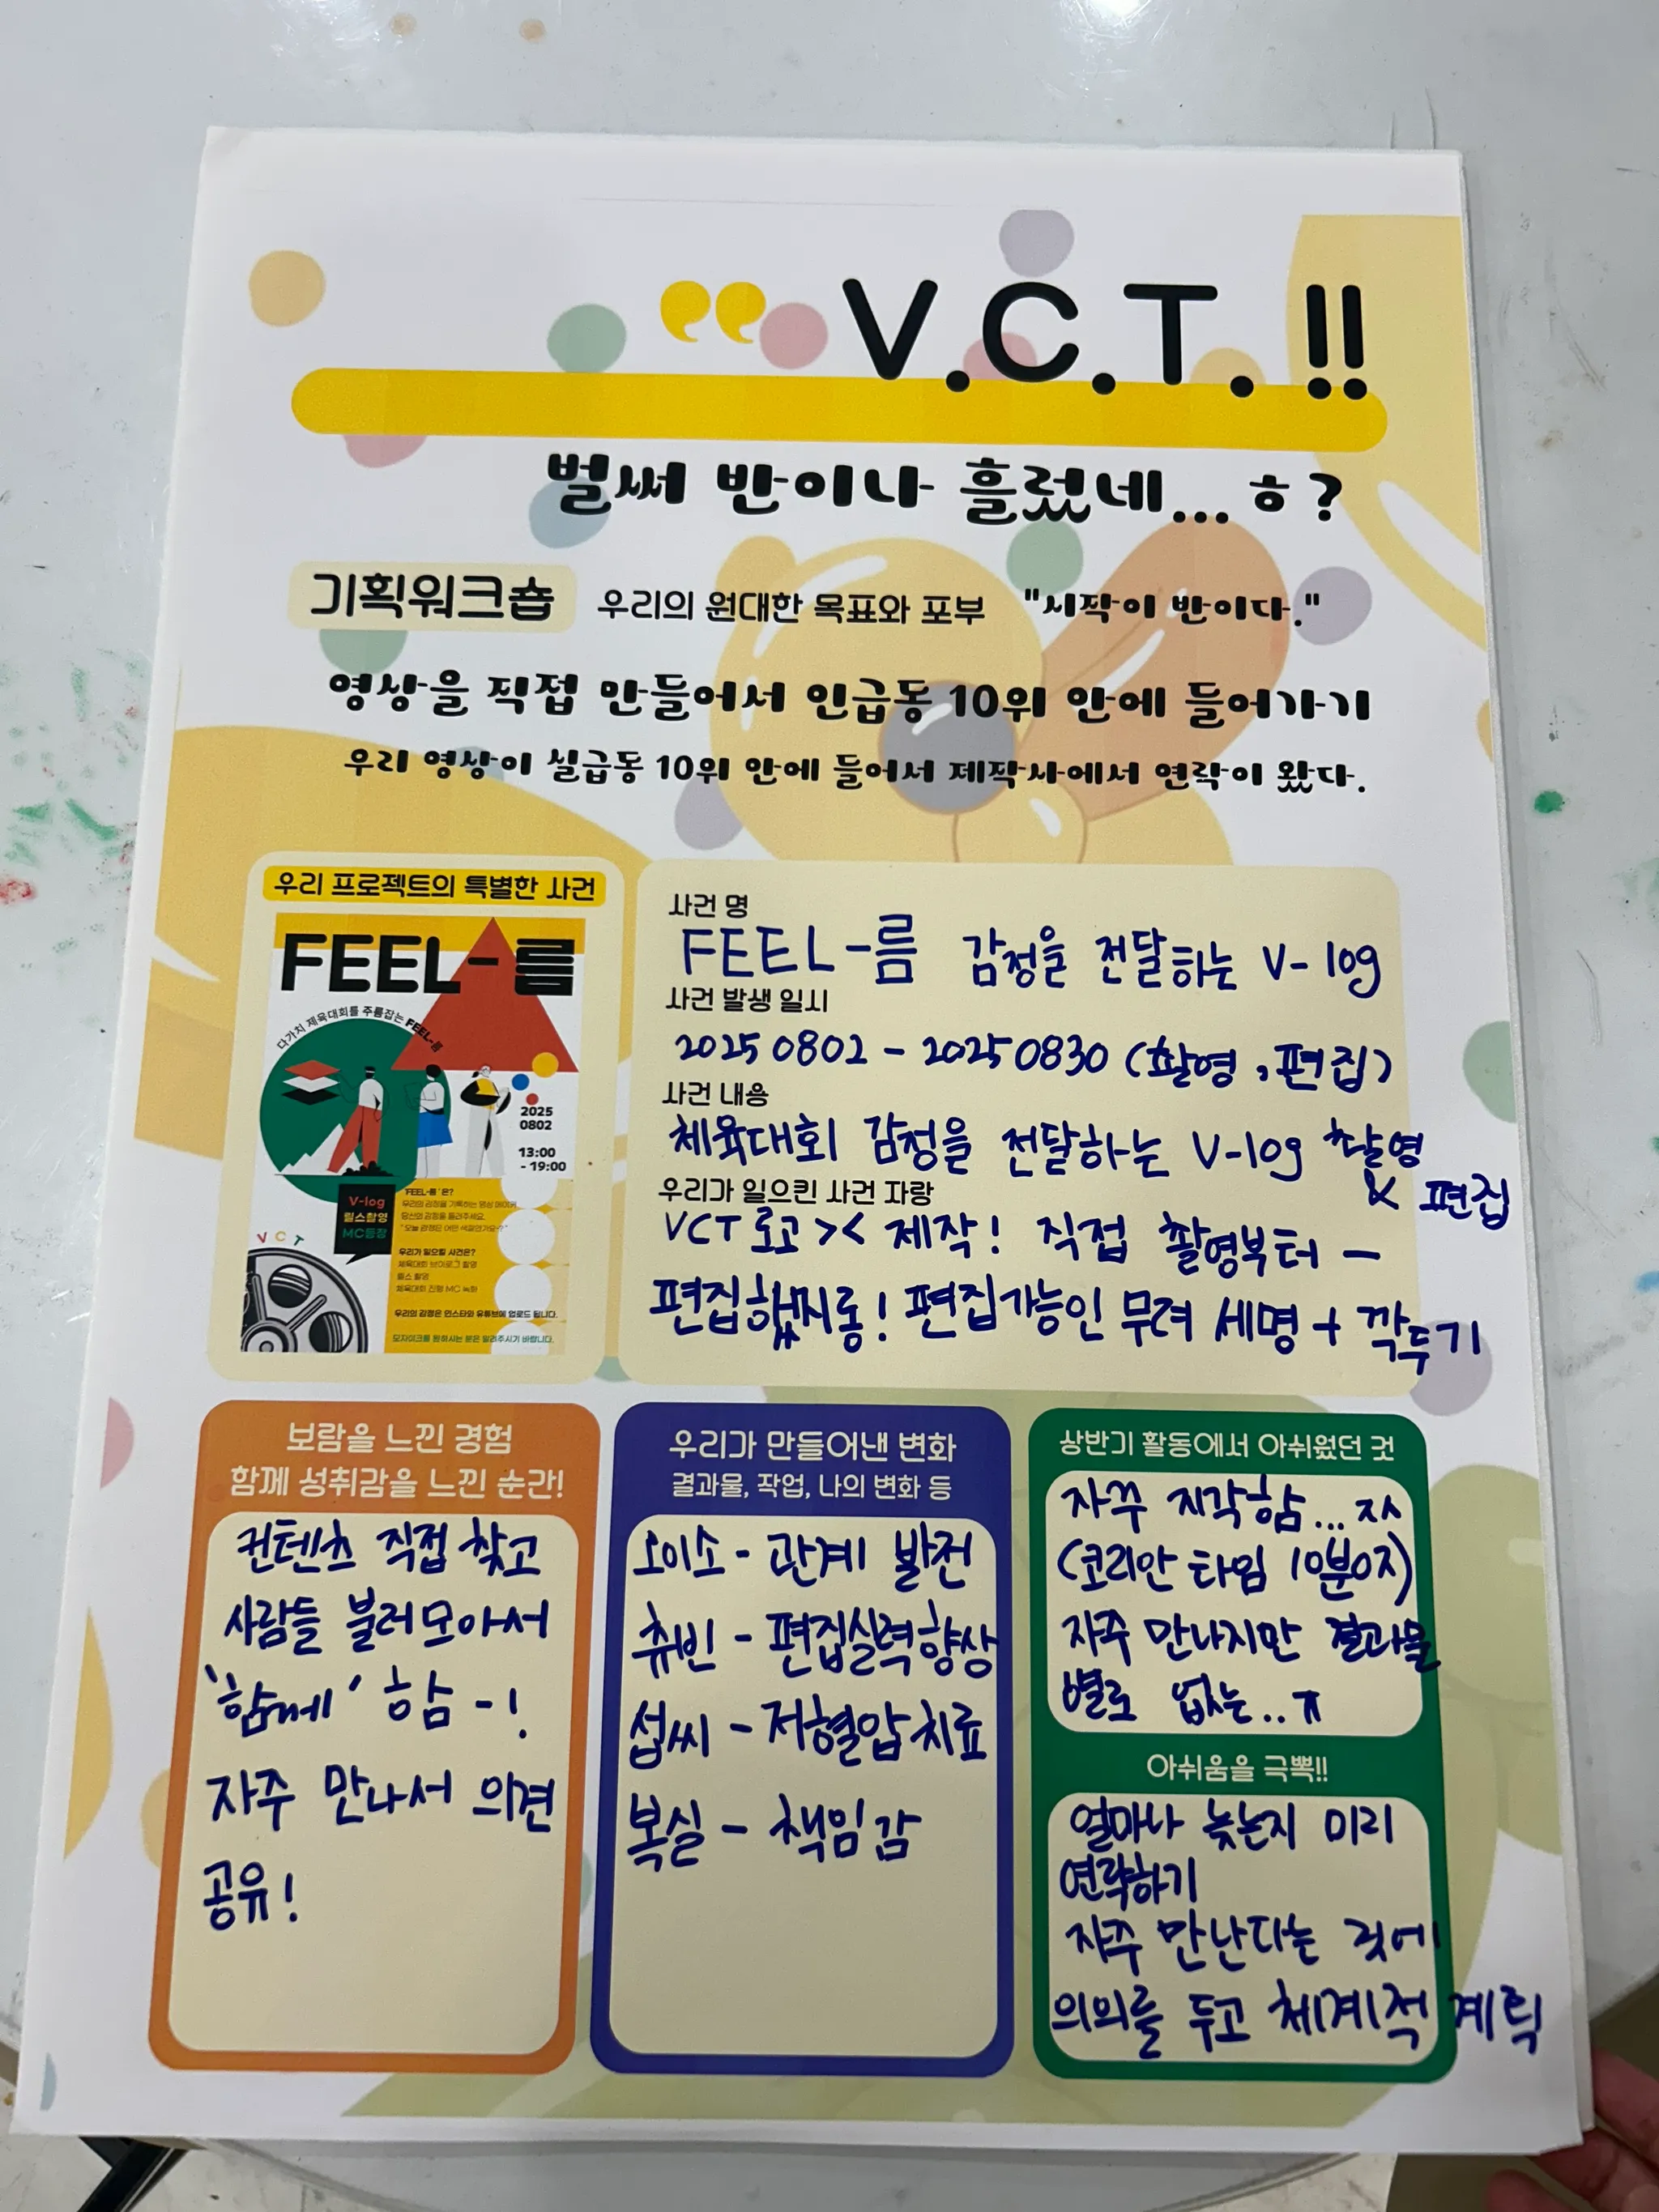 V.C.T. !!
벌써 반이나 흘렀네... ㅎ?
기획워크숍 우리의 원대한 목표와 포부 "시작이 반이다."
영상을 직접 만들어서 인급동 10위 안에 들어가기
우리 영상이 실급동 10위 안에 들어서 제작사에서 연락이 왔다.
우리 프로젝트의 특별한 사건
FEEL-름
다가치 체육대회를 주름잡는 FEEL-름
2025
0802
13:00
- 19:00
V-log
릴스촬영
MC등장
V C T
'FEEL-름'은?
우리의 감정을 기록하는 영상
당신의 감정을 들려주세요.
우리가 일으킬 사건은?
체육대회 브이로그 촬영
릴스 촬영
체육대회 진행 MC 녹화
우리의 감정은 인스타와 유튜브에 업로드 됩니다.
모자이크를 원하시는 분은 알려주시기 바랍니다.
사건 명
FEEL-름 감정을 전달하는 V-log
사건 발생 일시
20250802 - 20250830 (촬영, 편집)
사건 내용
체육대회 감정을 전달하는 V-log 촬영
& 편집
우리가 일으킨 사건 자랑
VCT 로고 >< 제작! 직접 촬영부터 ㅡ
편집했찌롱! 편집가능인 무려 세명 + 깍두기
보람을 느낀 경험
함께 성취감을 느낀 순간!
컨텐츠 직접 찾고
사람들 불러모아서
'함께' 함 - !
자주 만나서 의견
공유!
우리가 만들어낸 변화
결과물, 작업, 나의 변화 등
오이소 - 관계 발전
츄빈 - 편집실력향상
섭씨 - 저혈압치료
복실 - 책임감
상반기 활동에서 아쉬웠던 것
자꾸 지각함... ㅈㅅ
(코리안 타임 10분0지)
자주 만나지만 결과물
별로 없는.. ㅠ
아쉬움을 극뽁!!
얼마나 늦는지 미리
연락하기
자주 만난다는 것에
의의를 두고 체계적 계획